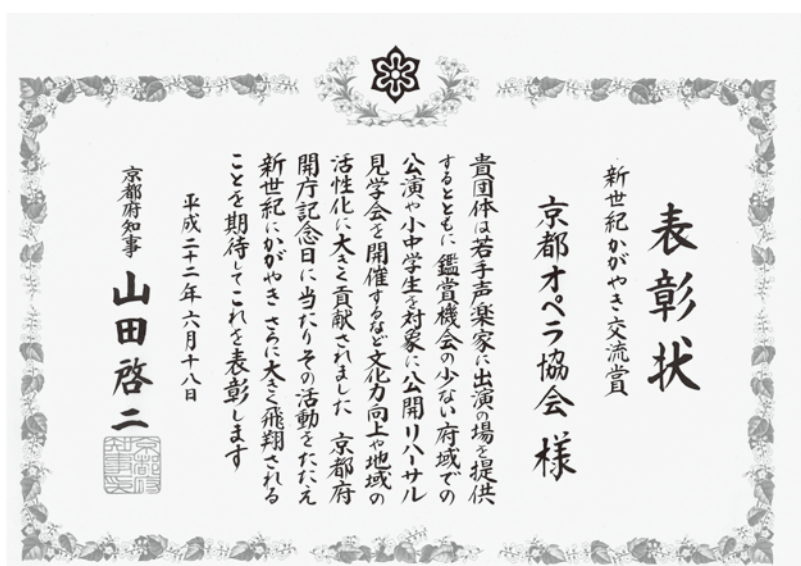 表彰状
新世紀かがやき交流賞
京都オペラ協会 様
貴団体は若手声楽家に出演の場を提供
するとともに鑑賞機会の少ない府域での
公演や小中学生を対象に公開リハーサル
見学会を開催するなど文化力向上や地域の
活性化に大きく貢献されました 京都府
開庁記念日に当たりその活動をたたえ
新世紀にかがやき さらに大きく飛翔される
ことを期待してこれを表彰します
平成二十二年六月十八日
京都府知事 山田啓二
京都府知事之印